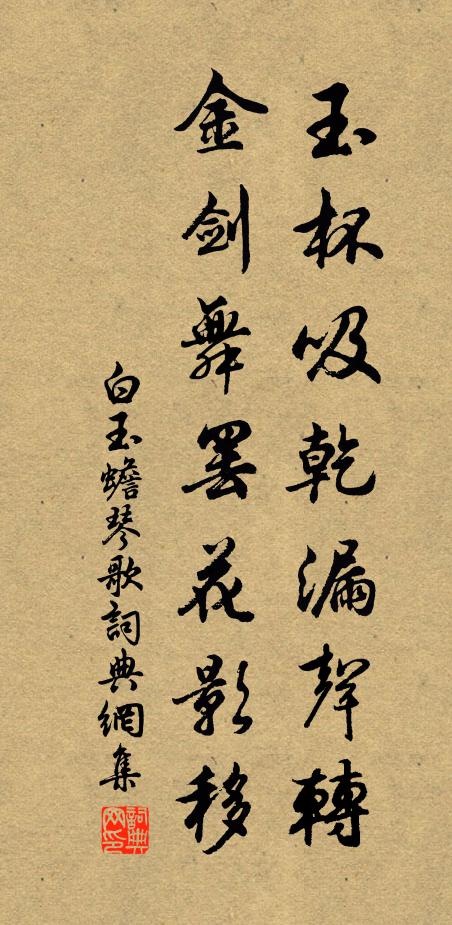 玉杯吸乾漏聲轉
金劍舞罷花影移
白玉蟾琴歌詞典網集
詞典網印